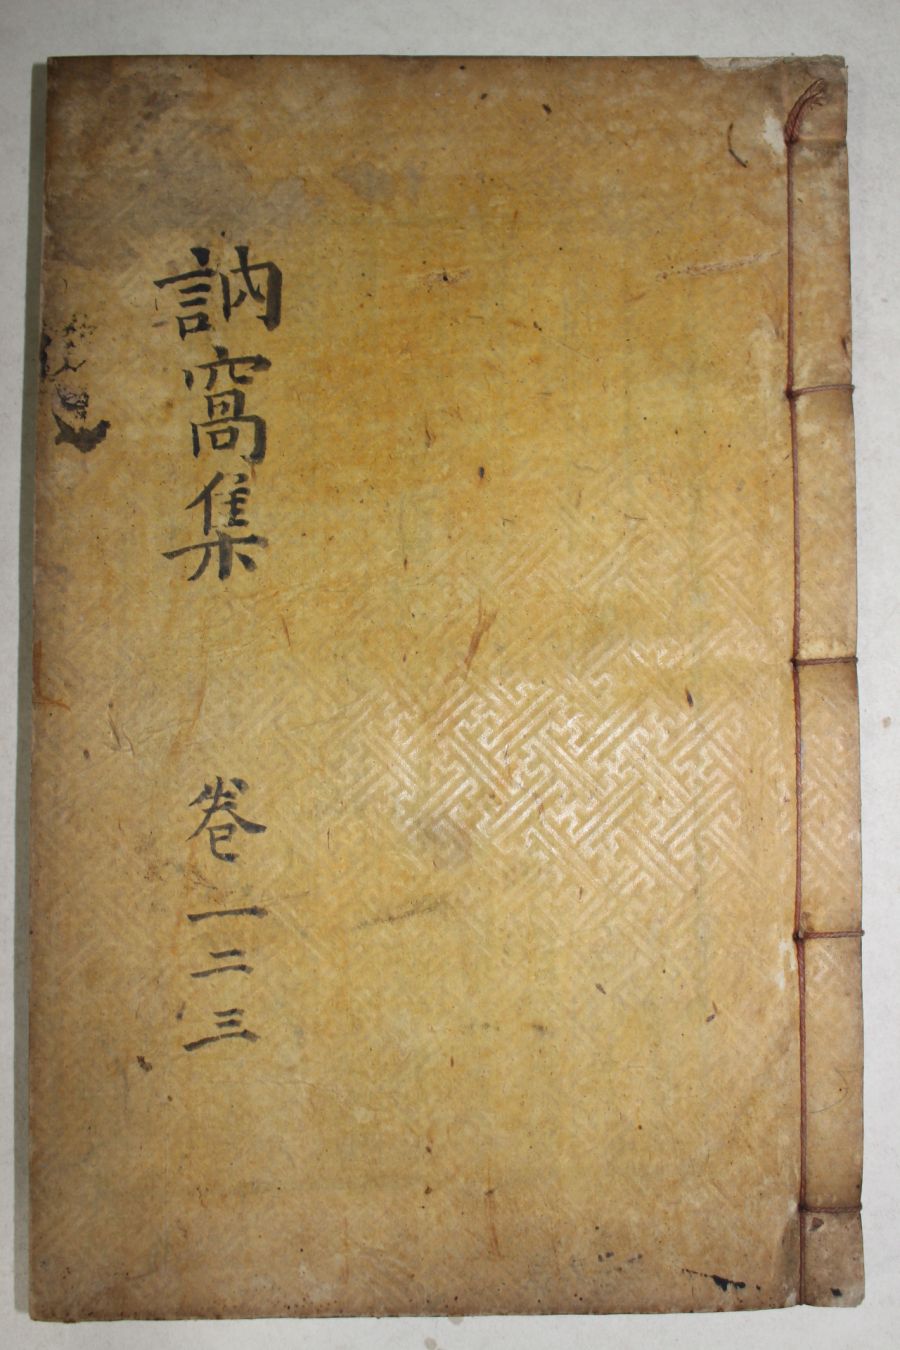 訥窩集 卷一二三